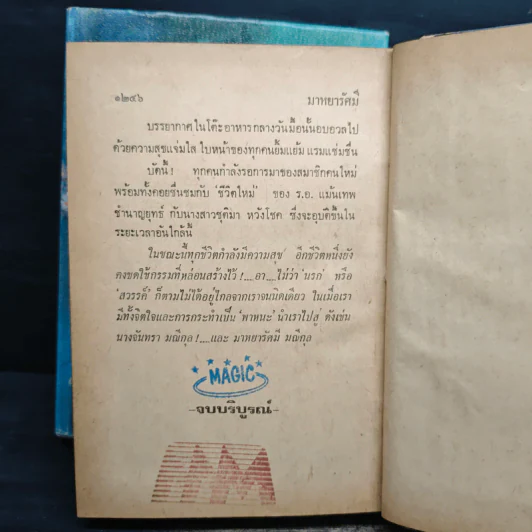 ๑๒๔๖ มาหยารัศมี
บรรยากาศในโต๊ะอาหารกลางวันมื้อนั้นอบอวลไป
ด้วยความสุขแจ่มใส ใบหน้าของทุกคนยิ้มแย้ม แรมแช่มชื่น
บัดนี้! ทุกคนกำลังรอการมาของสมาชิกคนใหม่
พร้อมทั้งคอยชื่นชมกับ ‘ชีวิตใหม่’ ของ ร.อ. แม้นเทพ
ชำนาญยุทธ์ กับนางสาวชุติมา หวังโชค ซึ่งจะอุบัติขึ้นใน
ระยะเวลาอันใกล้นี้
ในขณะนี้ทุกชีวิตกำลังมีความสุข อีกชีวิตหนึ่งยัง
คงชดใช้กรรมที่หล่อนสร้างไว้!....อา....ไม่ว่า ‘นรก’ หรือ
‘สวรรค์’ ก็ตามไม่ได้อยู่ไกลจากเราจนนิดเดียว ในเมื่อเรา
มีทั้งจิตใจและการกระทำเป็น ‘พาหนะ’ นำเราไปสู่ ดังเช่น
นางจันทรา มณีกุล!....และ มาหยารัศมี มณีกุล
MAGIC
-จบบริบูรณ์-